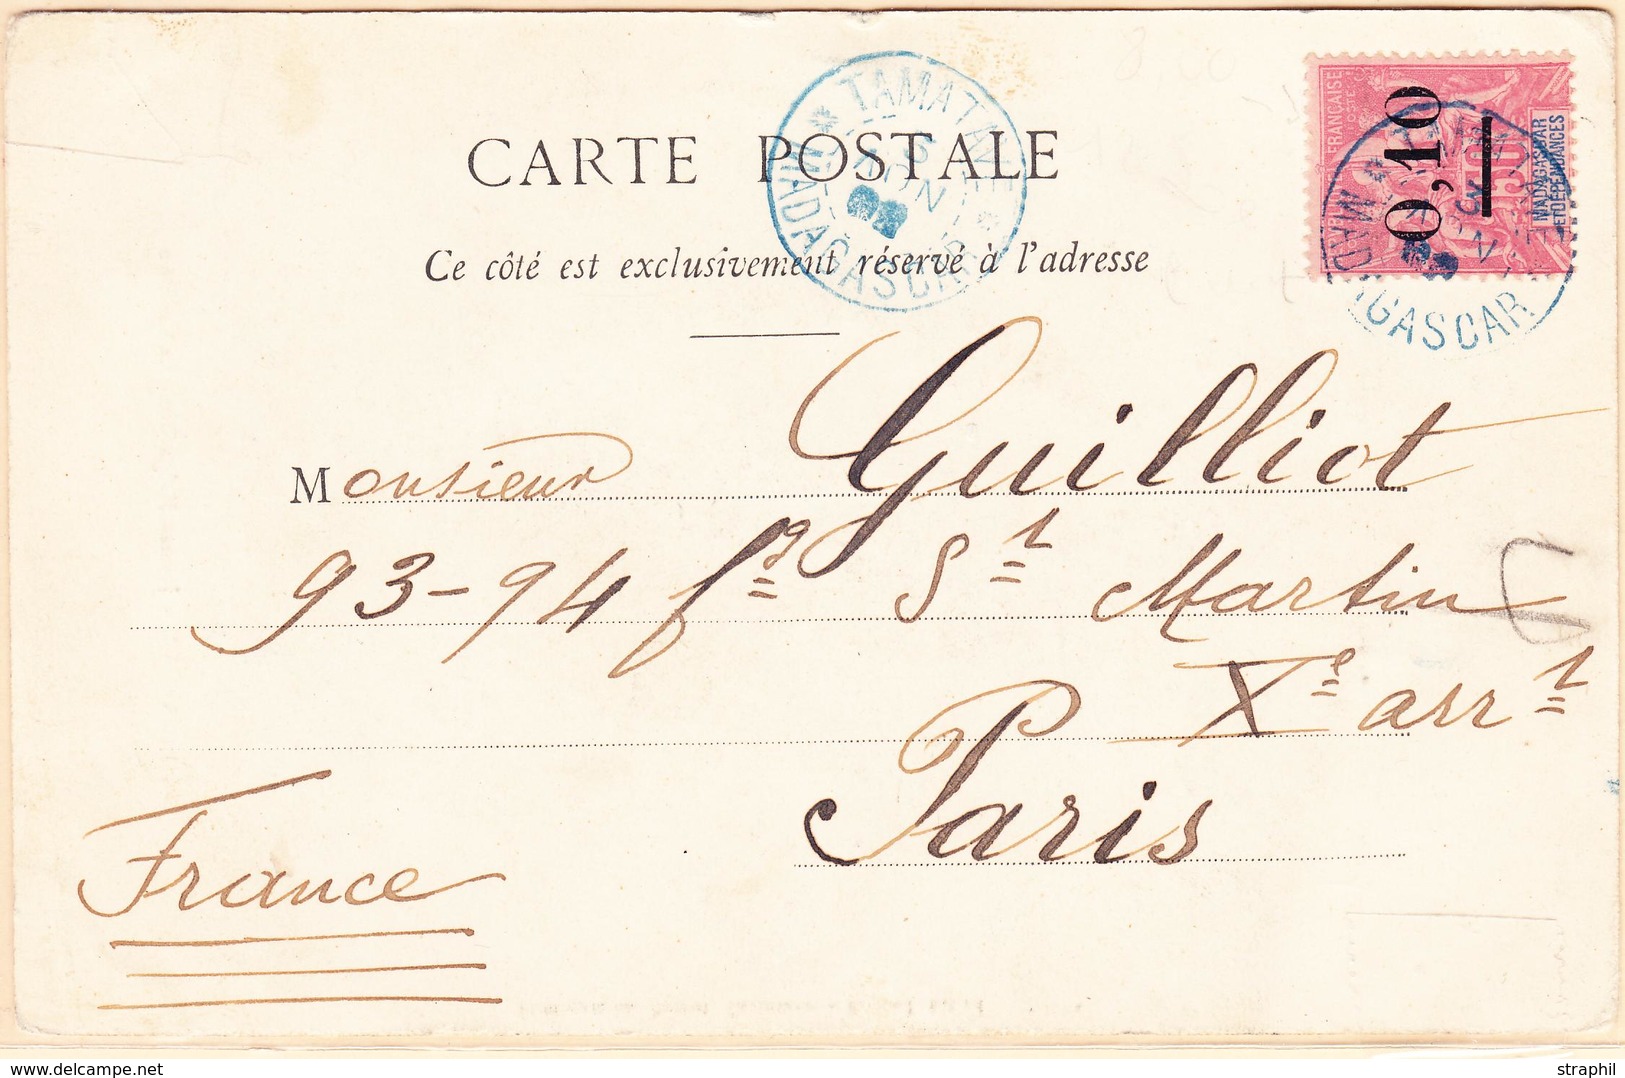 TAMATAVE * MADAGASCAR *
FRANÇAISE
0,10
50
MADAGASCAR
ET DÉPENDANCES
MADAGASCAR
CARTE POSTALE
Ce côté est exclusivement réservé à l'adresse
Monsieur Guilliot
93-94 fg St Martin
Xe arrt
Paris
France
straphil